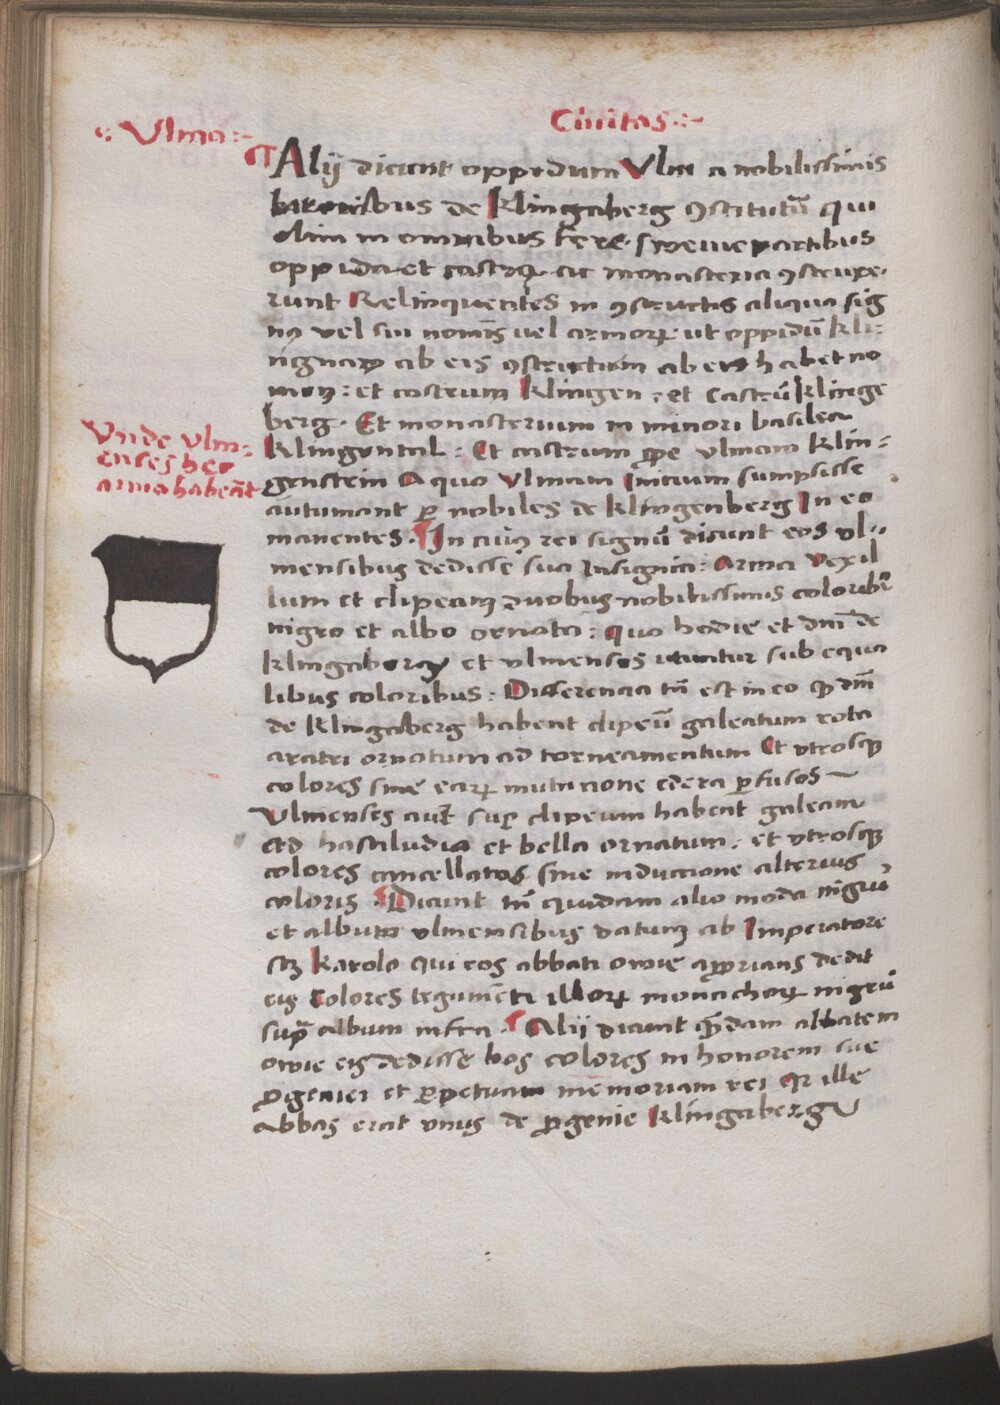 Ciuitas :~
:· Vlma :~
Alij dicunt oppidum Vlm a nobilissimis
baronibus de Klingaberg ꝯstitutū qui
olim in omnibus fere sweuie partibus
oppida et castra ac monasteria ꝯstruxe-
runt Relinquentes in ꝯstructis aliquo sig
nū vel sui nomīs uel armorꝝ ut oppidū kli-
ngnaw ab eis ꝯstructum ab eys habet no
men : et castrum Klingen : et Castrū klinge
berg · Et monasterium in minori basilea
Klingental : Et castrum ꝓpe vlmam klin-
genstein A quo Vlmam Inicium sumpsisse
autumant ꝑ nobiles de klingenberg In eo
manentes · In cuiꝯ rei signū dicunt eos vl-
mensibus dedisse sua Insignia : Arma vexil
lum et clipeum duobus nobilissimis coloribꝰ
nigro et albo ornata : quo hodie et dnī de
klingaberg et vlmenses utuntur sub equa
libus coloribus : Differencia tn̄ est in eo ꝙ dnī
de klingaberg habent clipeū galeatum rota
aratri ornatum ad torneamentum Et vtrosqꝫ
colores sine earꝝ mutacione cetera ꝑfusos ~
Vlmenses aut̄ suꝑ clipeum habent galeam
Ad hastiludia et bella ornatum · et vtrosqꝫ
colores cancellatos sine inductione alterius
coloris · Dicunt tn̄ quidam alio modo nigrū
et album vlmensibus datum ab Imperatore
scꝫ Karolo qui eos abbati owie apꝓrians dedit
eis Colores tegumenti illorꝝ monachorꝝ nigrū
supra album infra · Alij dicunt quēdam abbatem
owie eis dedisse hos colores in honorem sue
ꝓgeniei et ꝑpetuam memoriam rei Qr ille
abbas erat vnus de ꝓgenie Klingaberg
Vnde vlm-
enses hec
arma habeāt